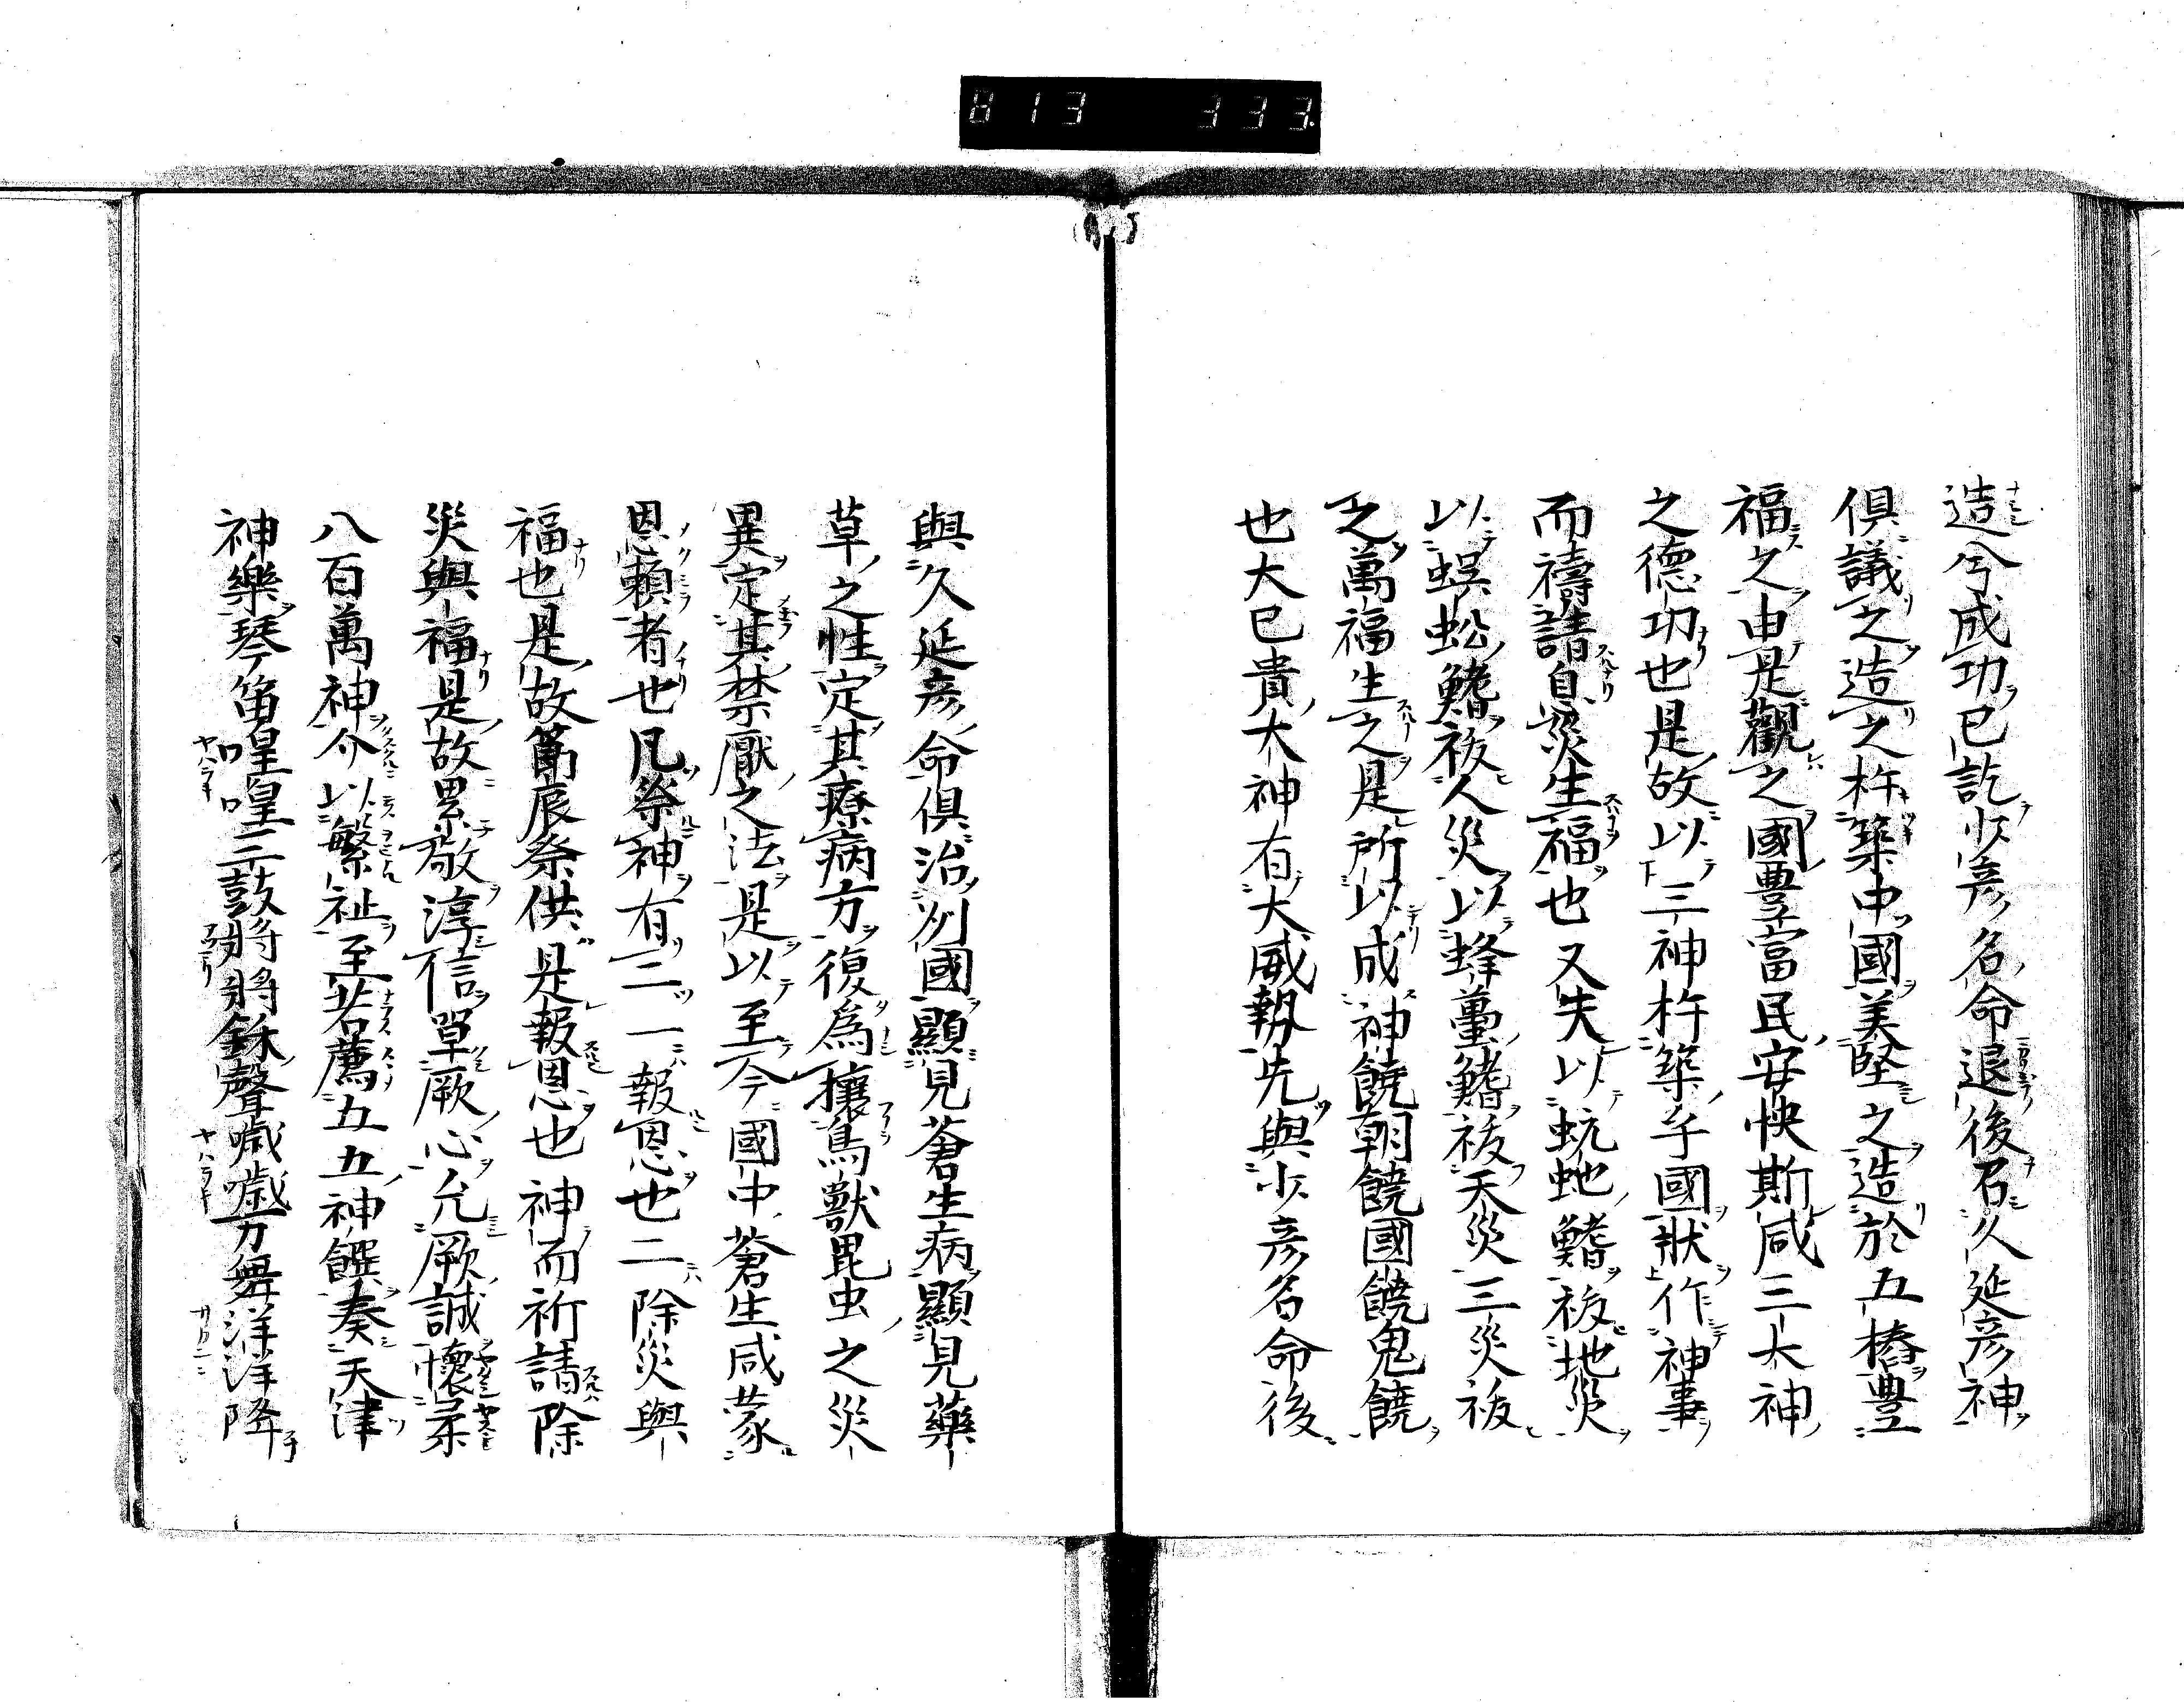 813 333.
造兮成功已訖少彦名命退後召久延彦神
俱議之造之杵築中國美堅之造於五椿豊
福之由是觀之國豊富民安快斯咸三大神
之德功也是故以三神杵築乎國狀作神事
而禱請息災生福也又失以蚖虵鰭祓地災
以蜈蚣鰭祓人災以蜂蠆鰭祓天災三災祓
之萬福生之是所以成神饒朝饒國饒鬼饒
也大已貴大神有大威勢先與少彦名命後
與久延彦命俱治列國顯見蒼生病顯見藥
草之性定其療病方復爲攘鳥獸毘虫之災
異定其禁厭之法是以至今國中蒼生咸蒙
恩賴者也凡祭神有二一報恩也二除災與
福也是故節辰祭供是報恩也神而祈請除
災與福是故累敬淳信單厥心允厥誠懷柔
八百萬神介以繁祉至若薦五五神饌奏天津
神樂琴笛喤喤三鼓將將鉌聲噦噦万舞洋洋降